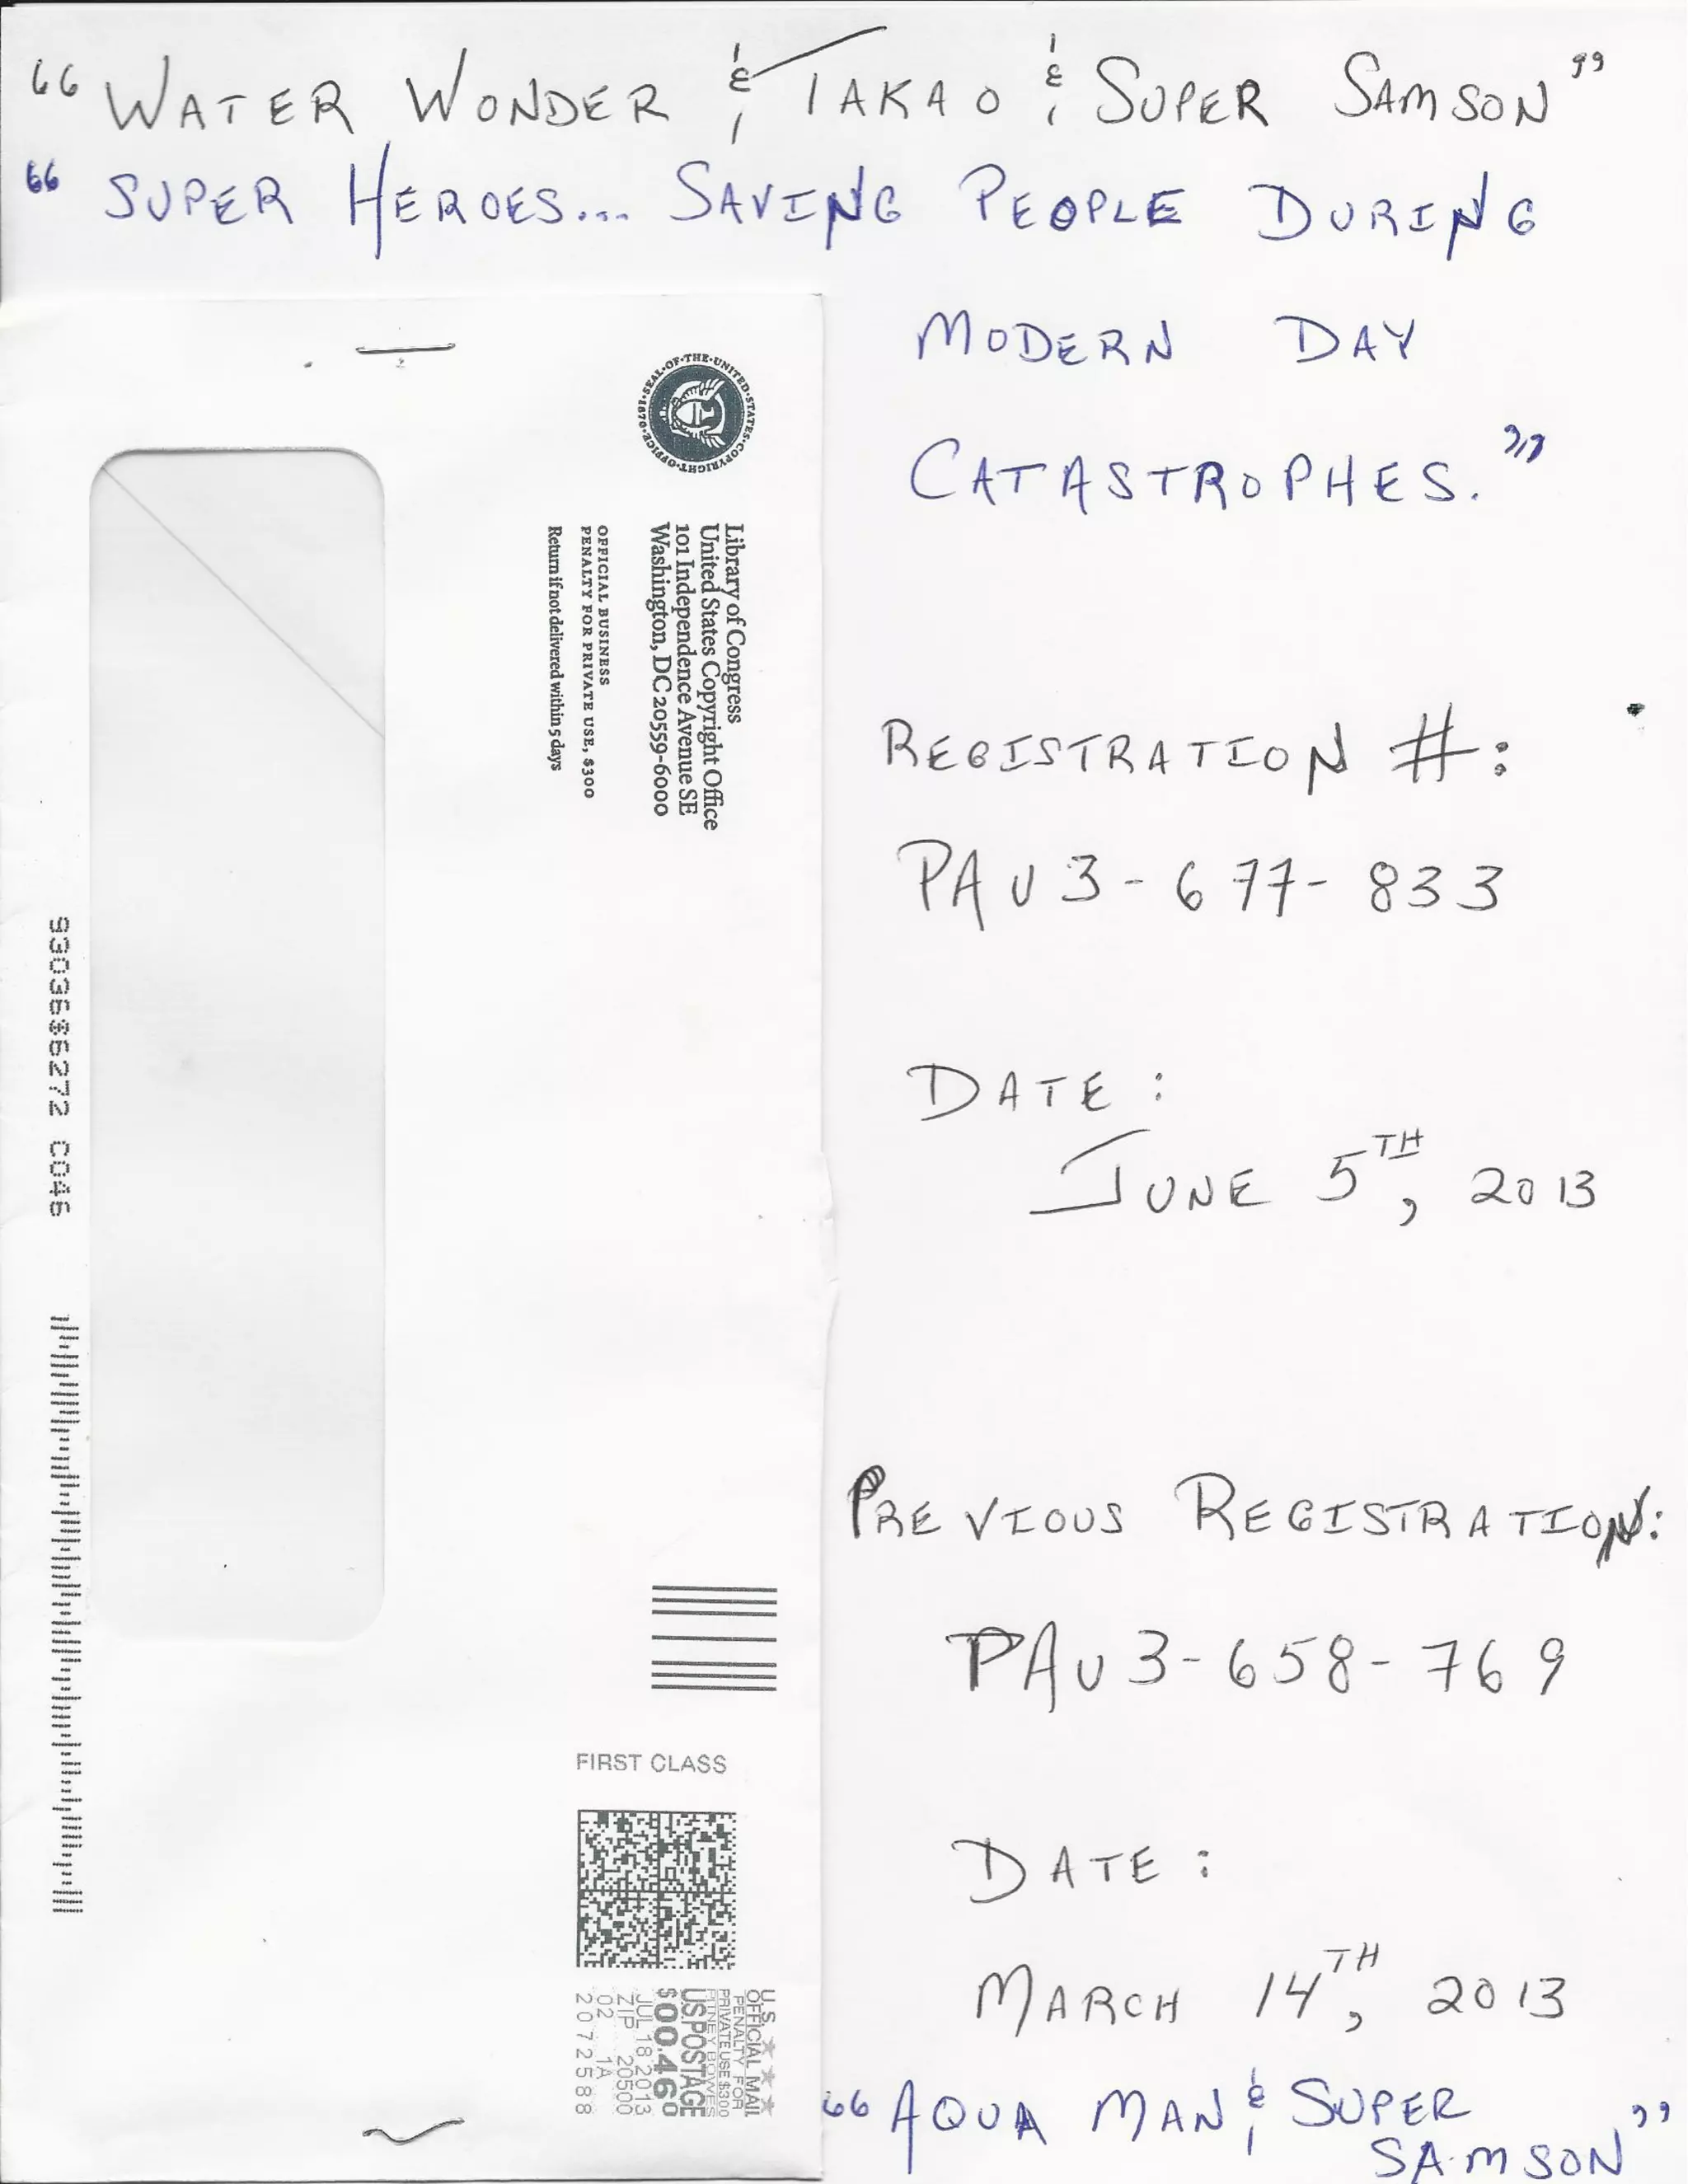 “WATER WONDER & TAKAO & SUPER SAMSON”
“SUPER HEROES... SAVING PEOPLE DURING
MODERN DAY
CATASTROPHES.”
SEAL·OF·THE·UNITED·STATES·COPYRIGHT·OFFICE·1870
Library of Congress
United States Copyright Office
101 Independence Avenue SE
Washington, DC 20559-6000
OFFICIAL BUSINESS
PENALTY FOR PRIVATE USE, $300
Return if not delivered within 5 days
REGISTRATION #:
PAU3-677-833
DATE:
JUNE 5TH, 2013
PREVIOUS REGISTRATION:
PAU3-658-769
DATE:
MARCH 14TH, 2013
“AQUA MAN & SUPER
SAMSON”
FIRST CLASS
U.S.
OFFICIAL MAIL
PENALTY FOR
PRIVATE USE $300
PITNEY BOWES
US POSTAGE
$00.460
JUL 18 2013
ZIP 20500
02 1A
2072588